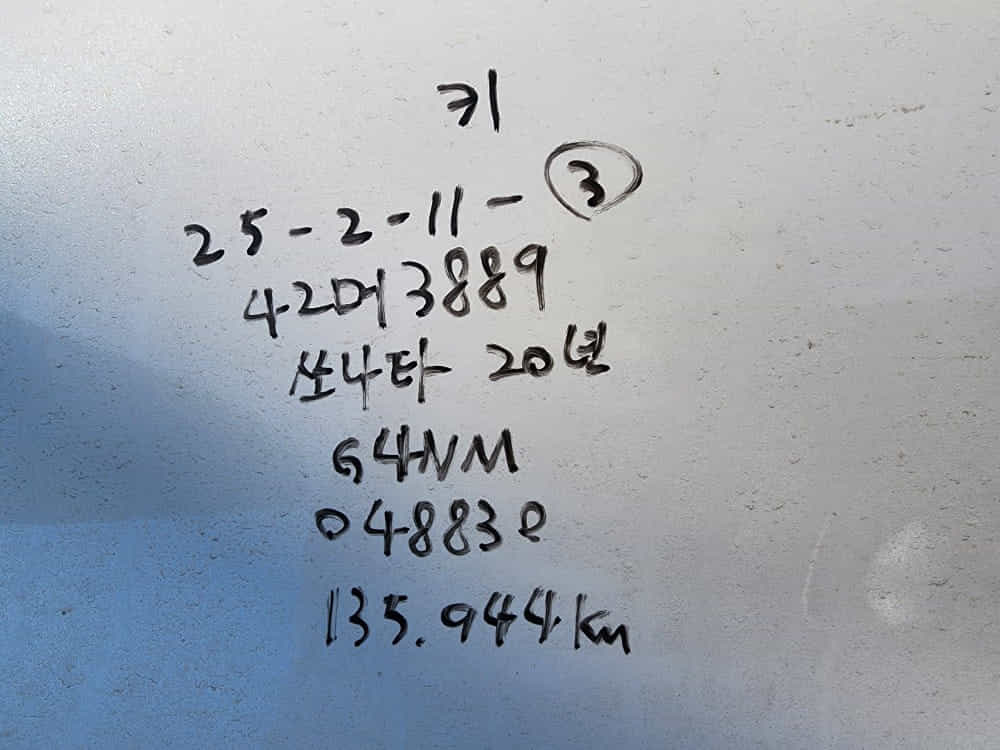 키
25-2-11-③
42머3889
쏘나타 20년
G4NM
048830
135.944km